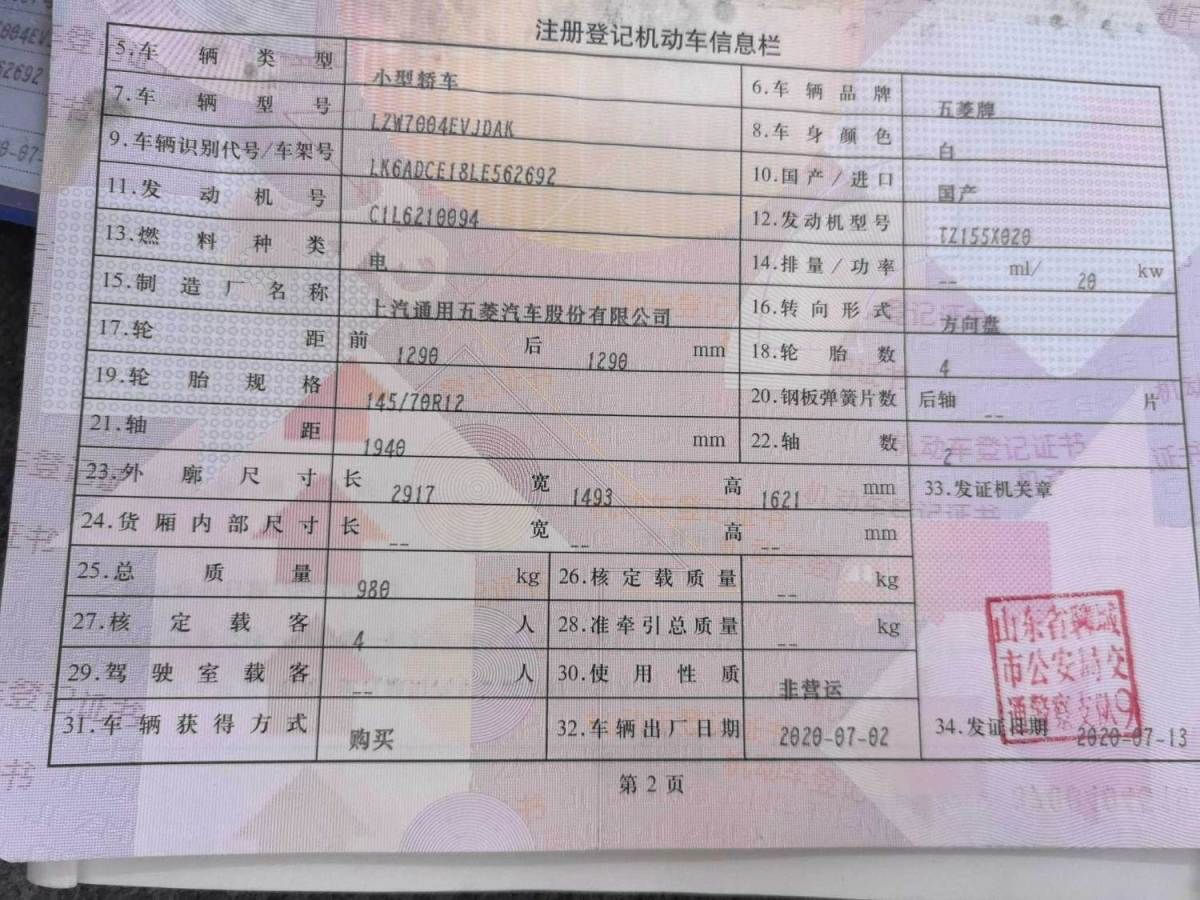 注册登记机动车信息栏
5.车辆类型 小型轿车 6.车辆品牌 五菱牌
7.车辆型号 LZW7004EVJDAK 8.车身颜色 白
9.车辆识别代号/车架号 LK6ADCE18LE562692 10.国产/进口 国产
11.发动机号 C1L6210094 12.发动机型号 TZ155X020
13.燃料种类 电 14.排量/功率 -- ml/ 20 kw
15.制造厂名称 上汽通用五菱汽车股份有限公司 16.转向形式 方向盘
17.轮距 前 1290 后 1290 mm 18.轮胎数 4
19.轮胎规格 145/70R12 20.钢板弹簧片数 后轴 -- 片
21.轴距 1940 mm 22.轴数 2
23.外廓尺寸 长 2917 宽 1493 高 1621 mm 33.发证机关章
24.货厢内部尺寸 长 -- 宽 -- 高 -- mm
25.总质量 980 kg 26.核定载质量 -- kg
27.核定载客 4 人 28.准牵引总质量 -- kg
山东省聊城
市公安局交
通警察支队9
29.驾驶室载客 -- 人 30.使用性质 非营运
31.车辆获得方式 购买 32.车辆出厂日期 2020-07-02 34.发证日期 2020-07-13
第 2 页